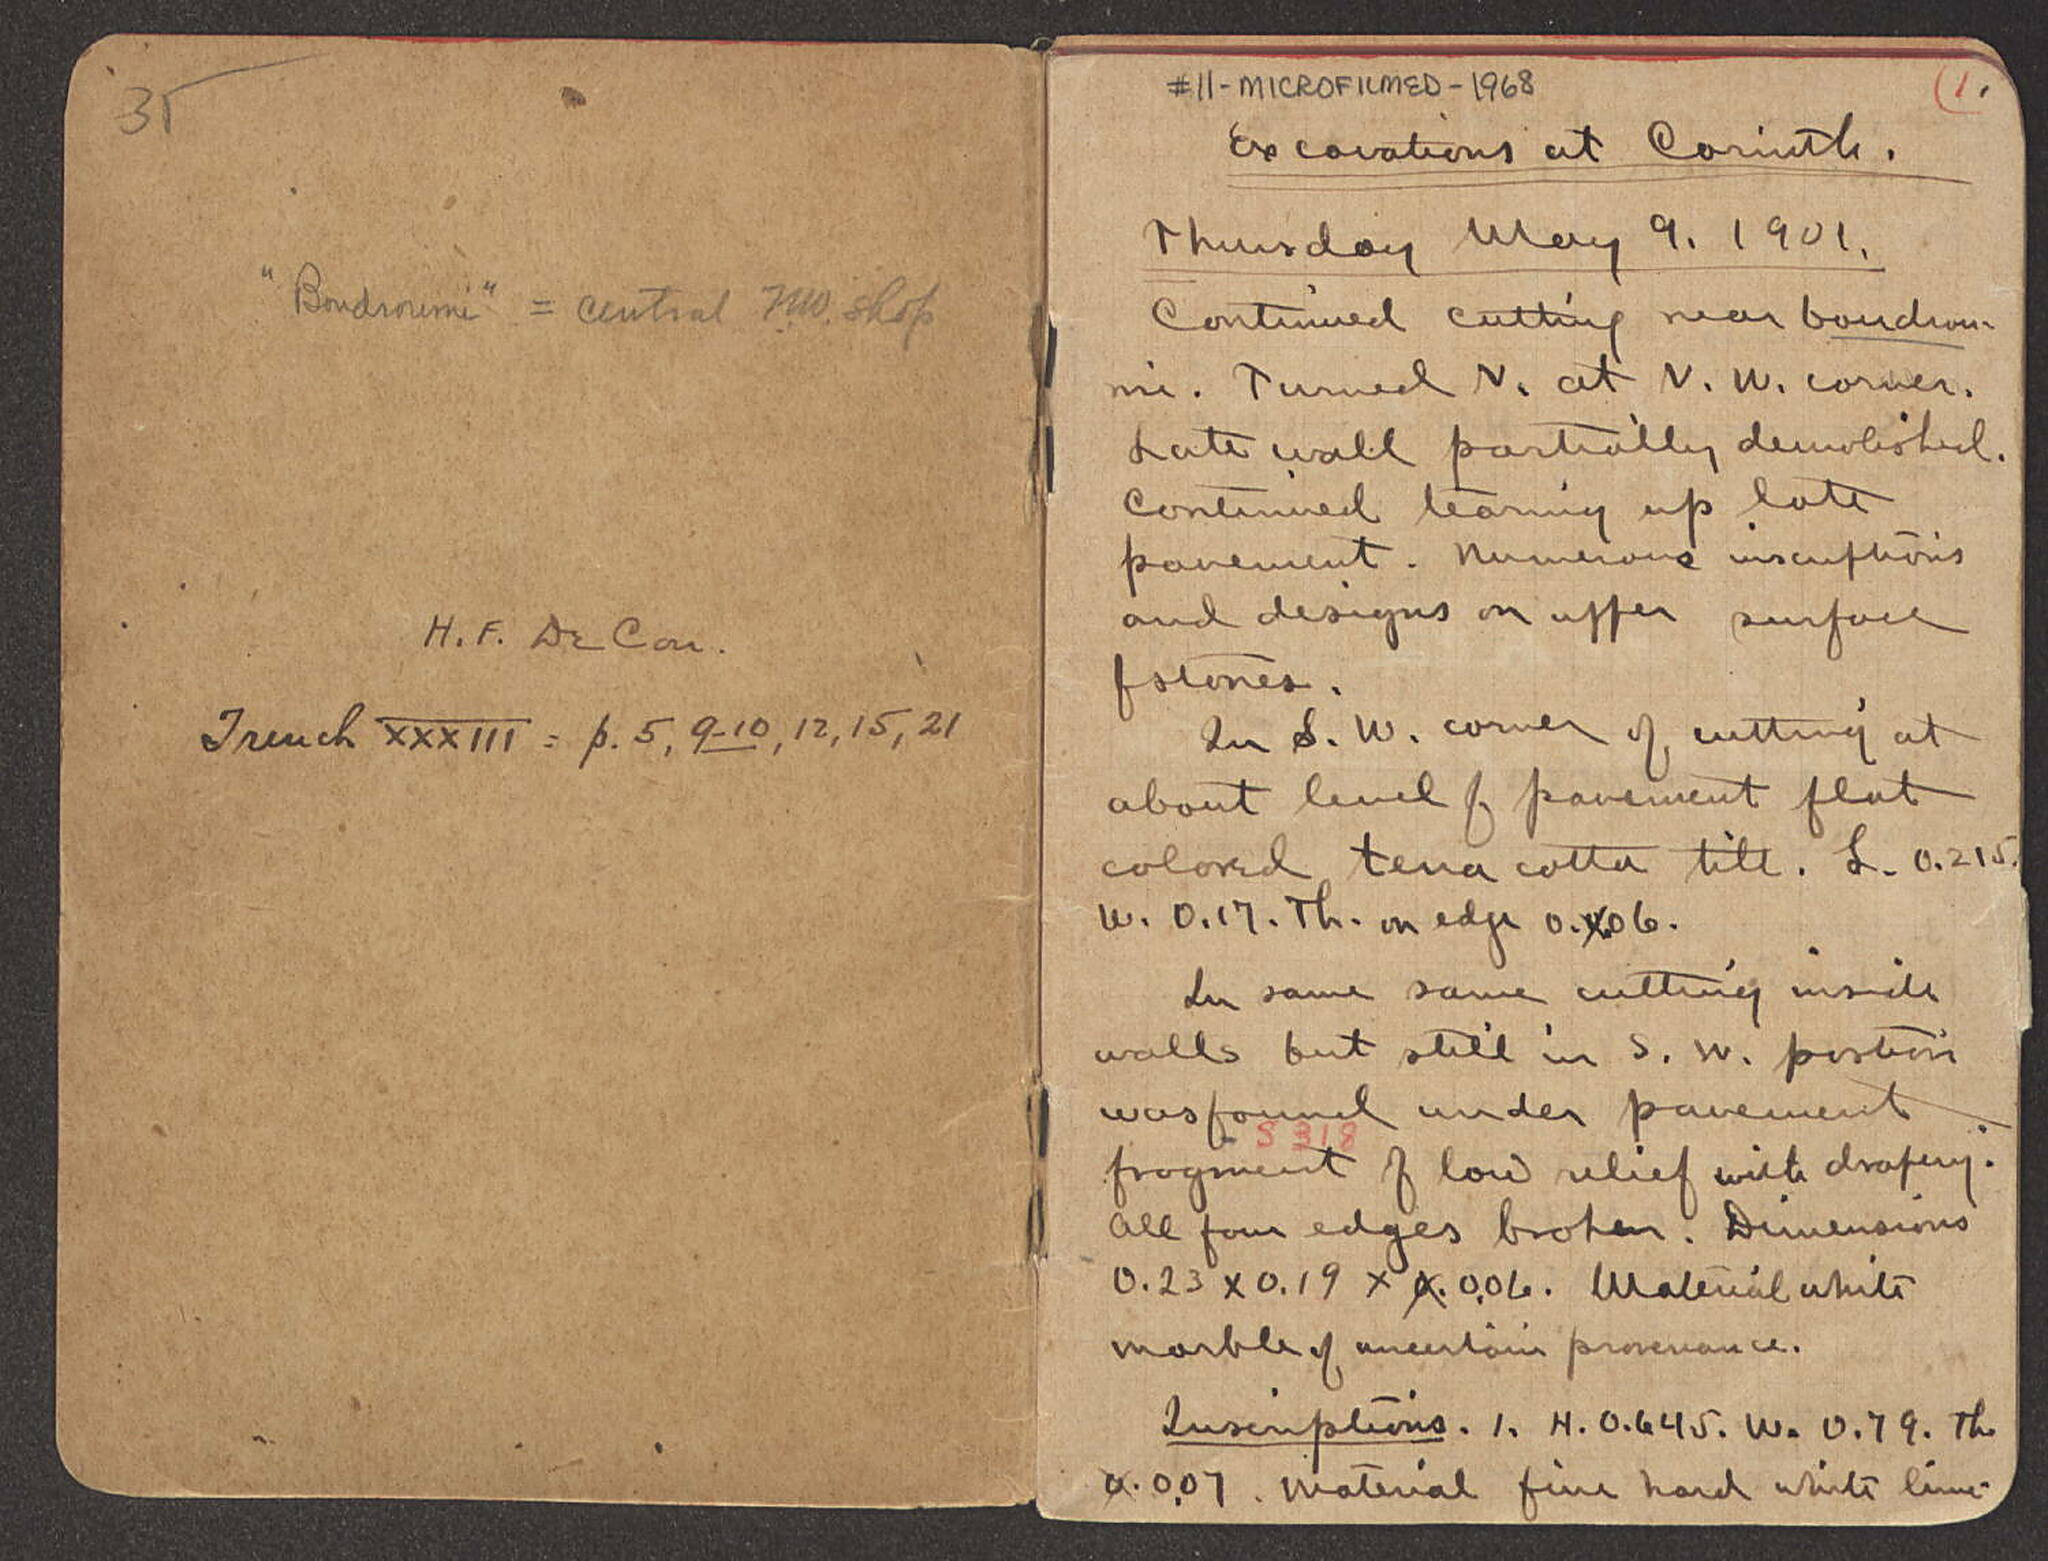 35
"Boudroumi" = central NW. shop
H.F. De Cou.
Trench XXXIII = p. 5, 9-10, 12, 15, 21
#11-MICROFILMED-1968
1.
Excavations at Corinth.
Thursday May 9. 1901.
Continued cutting near boudrou-
mi. Turned N. at N.W. corner.
Late wall partially demolished.
Continued tearing up late
pavement. Numerous inscriptions
and designs on upper surface
of stones.
In S.W. corner of cutting at
about level of pavement flat
colored terra cotta tile. L. 0.215.
W. 0.17. Th. on edge 0.06.
In same same cutting inside
walls but still in S.W. portion
was found under pavement
S 318
fragment of low relief with drapery.
All four edges broken. Dimensions
0.23 x 0.19 x 0.06. Material white
marble of uncertain provenance.
Inscriptions. 1. H. 0.645. W. 0.79. Th.
0.07. Material fine hard white lime-